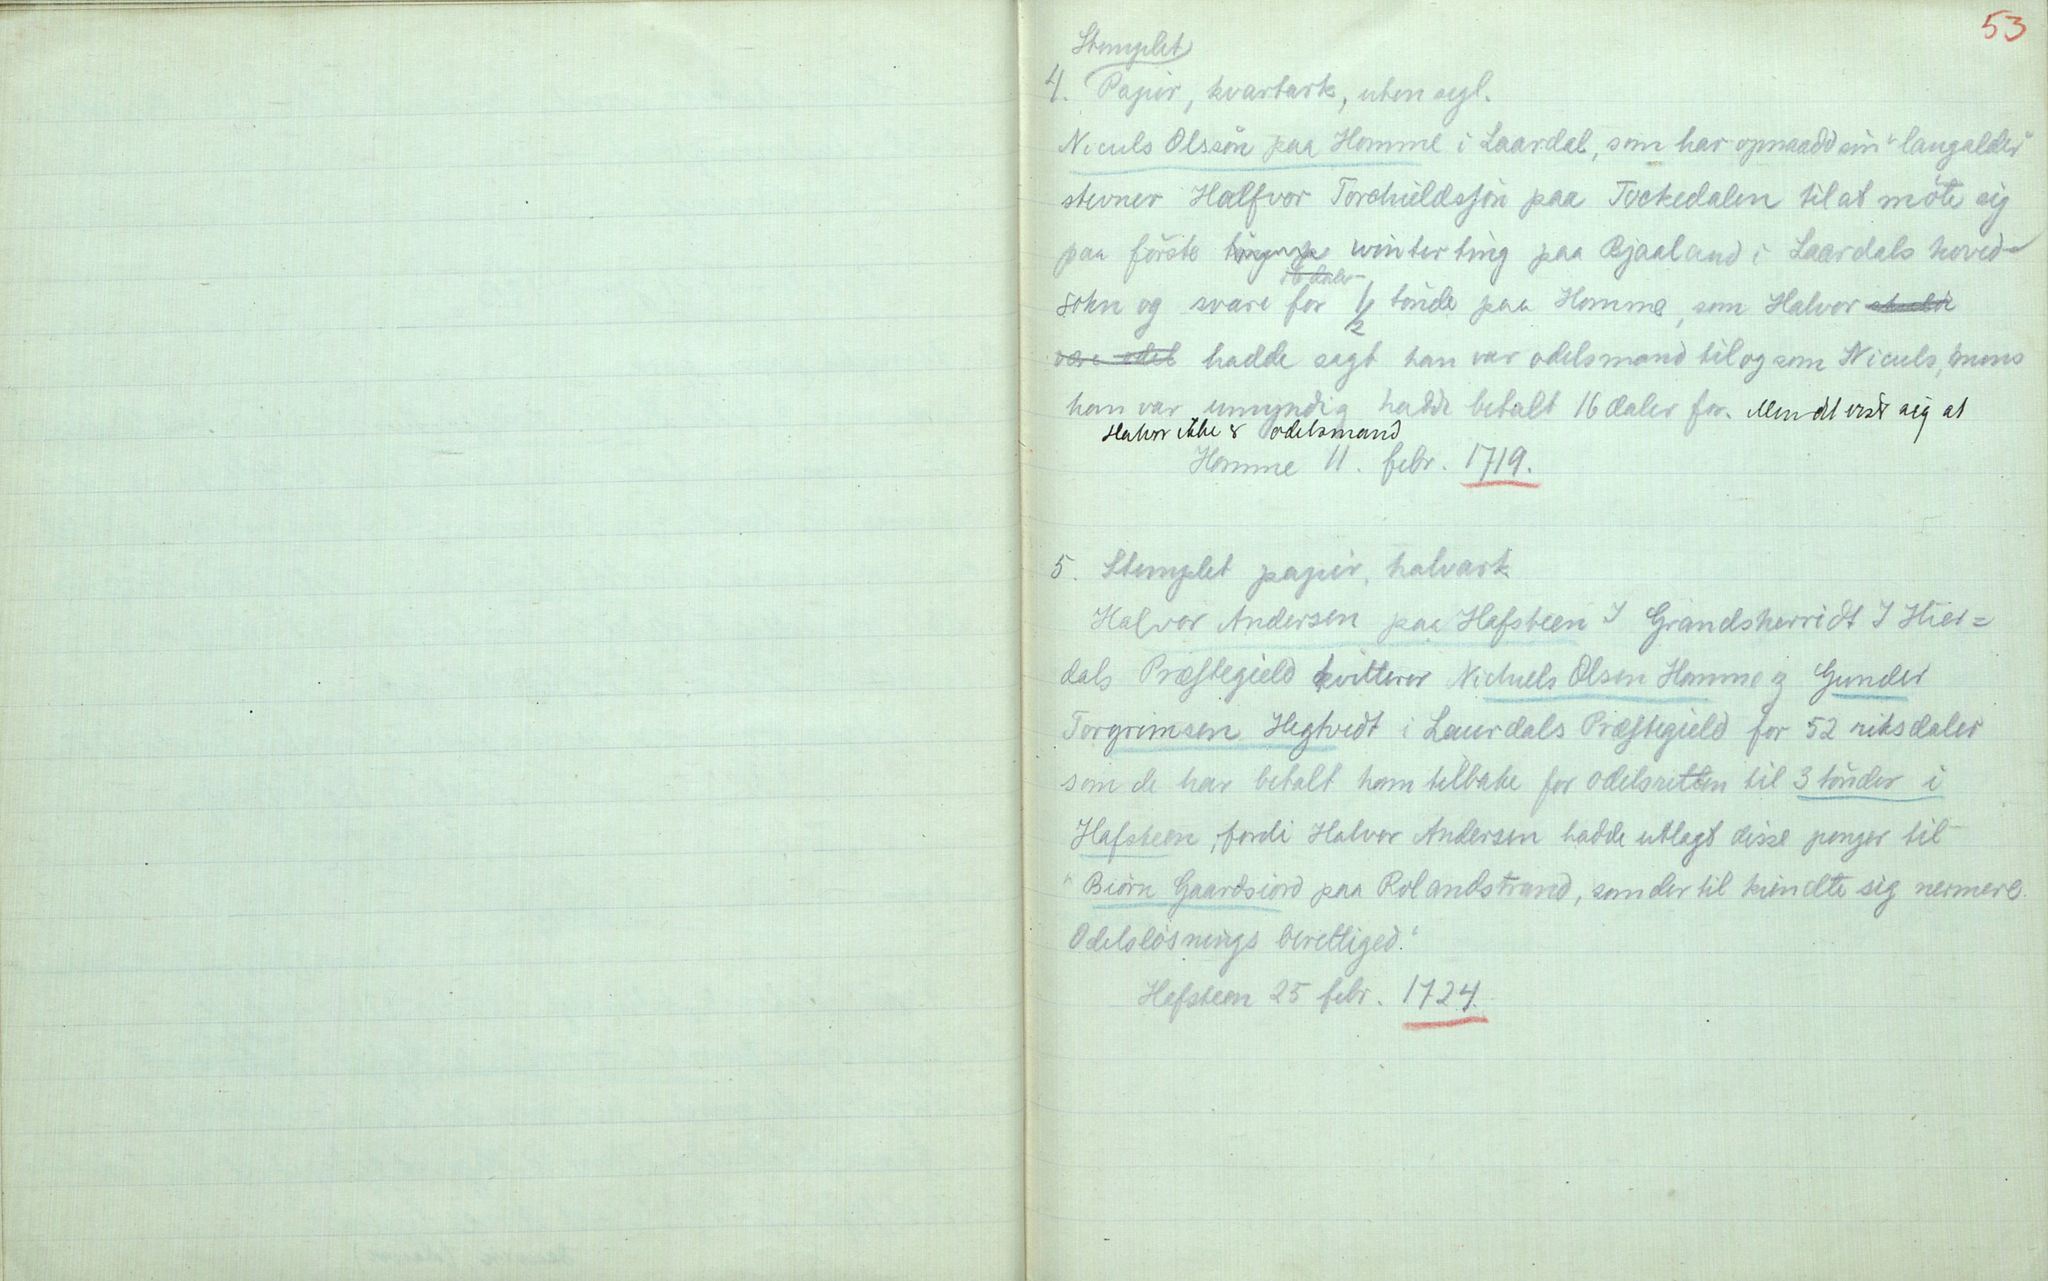 53
Stemplet
4. Papir, kvartark, uten segl.
Niculs Olssön paa Homme i Laardal, som har opnaadd sin "laugalder"
stevner Halfvor Torchieldssön paa Tvckedalen til at möte sig
paa förste winter ting paa Bjaaland i Laardals hoved-
sokn og svare for 1/2 tönde paa Homme, som Halvor skulde
være odel hadde sagt han var odelsmand til og som Niculs, mens
han var umyndig hadde betalt 16 daler for. Men det viste sig at
Halvor ikke odelsmand
Homme 11. febr. 1719.
5. Stemplet papir, halvark
Halvor Andersen paa Hafsteen I Grandsherridt I Hier=
dals Præstegield kvitterer Nichuels Olsen Homme og Gunder
Torgrimsen Hegtvedt i Laurdals Præstegield for 52 riksdaler
som de har betalt ham tilbake for odelsretten til 3 tönder i
Hafsteen, fordi Halvor Andersen hadde utlagt disse penger til
"Biörn Gaardsiord paa Rolandstrand, som der til kiendte sig nermere
Odelslösnings berettiged."
Hafsteen 25 febr. 1724.